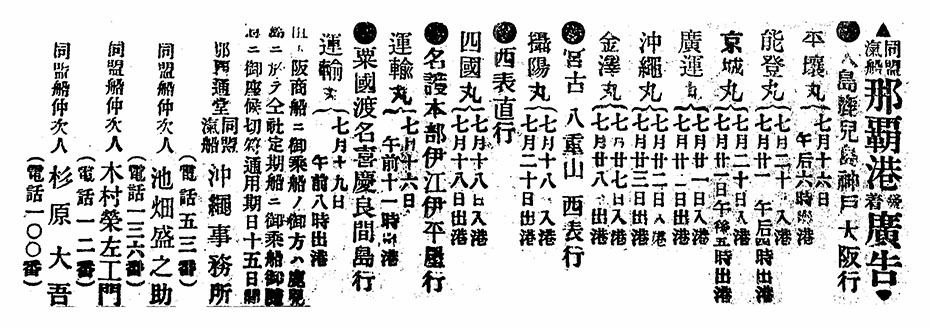 ▲同盟滊船那覇港發着廣告▼
●大島鹿兒島神戸大阪行
平壤丸 七月十六日 午后六時出港
能登丸 七月二十日入港 七月廿一日午后四時出港
京城丸 七月二十日入港 七月廿一日午後五時出港
廣運丸 七月二十日入港 七月廿二日出港
沖繩丸 七月廿二日入港 七月廿三日出港
金澤丸 七月廿七日入港 七月廿八日出港
●宮古八重山西表行
攝陽丸 七月十八日入港 七月二十日出港
●西表直行
四國丸 七月十八日入港 七月十八日出港
●名護本部伊江伊平屋行
運輸丸 七月十六日 午前十一時出港
●粟國渡名喜慶良間島行
運輸丸 七月十九日 午前八時出港
大阪商船ニ御乘船ノ御方ハ鹿兒
ニ於テ仝社定期船ニ御乘船御隨
ニ御座候切符通用期日十五日間
那覇西通堂 同盟滊船 沖繩事務所
(電話五三番)
同盟船仲次人 池畑盛之助
(電話一三六番)
同盟船仲次人 木村榮左工門
(電話一二番)
同盟船仲次人 杉原大吾
(電話一〇〇番)